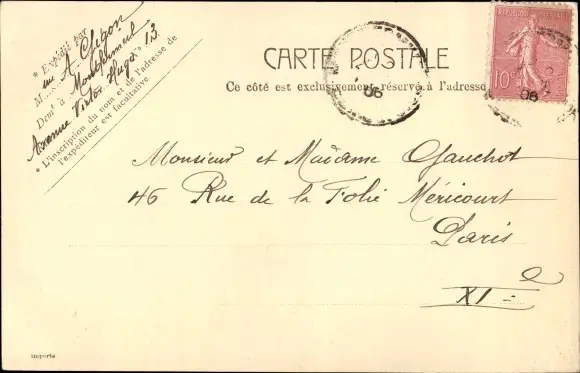 * Expédié par
M. A. Chigon
Demt à Montfermeil
Avenue Victor Hugo 13
* L'inscription du nom et de l'adresse de
l'expéditeur est facultative
CARTE POSTALE
Ce côté est exclusivement réservé à l'adresse
06
10c
06
Monsieur et Madame Gauchot
46 Rue de la Folie Méricourt
Paris
XIe